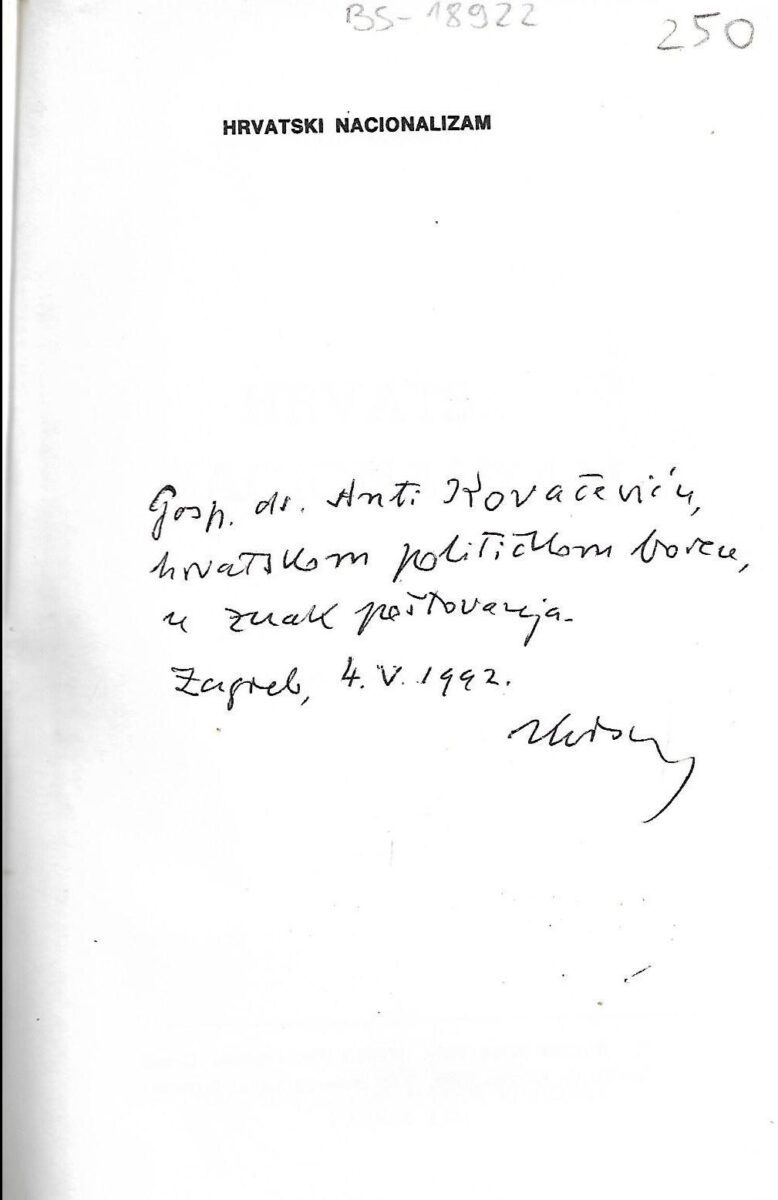 BS-18922
250
HRVATSKI NACIONALIZAM
Gosp. dr. Anti Kovačeviću,
hrvatskom političkom borcu,
u znak poštovanja.
Zagreb, 4. V. 1992.